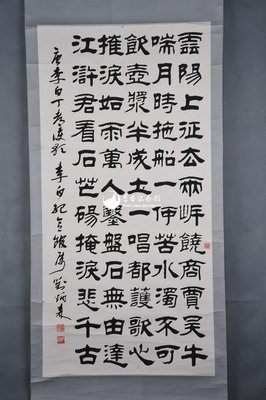 雲陽上征去兩岸饒商賈吳牛
喘月時拖船一何苦水濁不可
飲壺漿半成土一唱都護歌心
摧淚如雨萬人鑿盤石無由達
江滸君看石芒碭掩淚悲千古
唐李白丁都護歌 李白紀念館屬 劉炳森